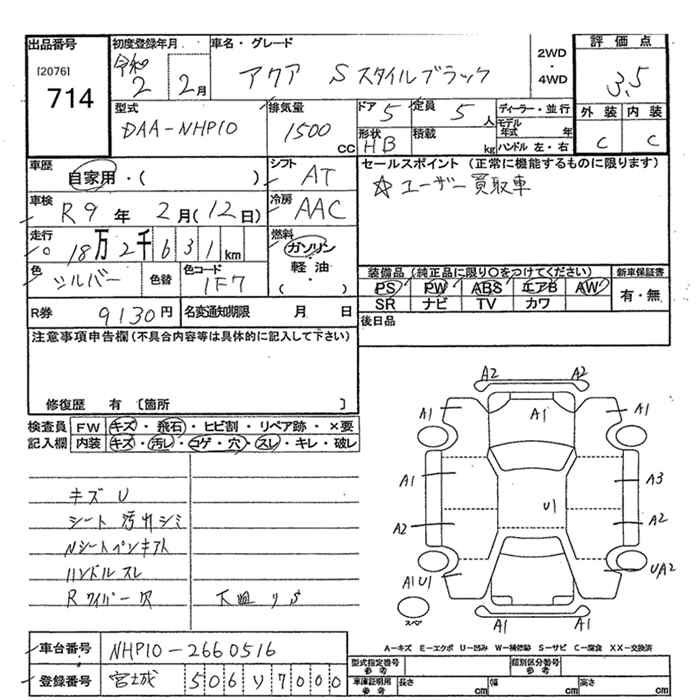 出品番号 [2076] 714
初度登録年月 令和 2 2月
車名・グレード アクア Sスタイルブラック
2WD・4WD
評価点 3.5
外装 内装
C C
型式 DAA-NHP10
排気量 1500 CC
ドア 5 定員 5 人
形状 HB 積載 kg
ディーラー・並行
モデル年式 年
ハンドル 左・右
車歴 自家用・( )
シフト AT
車検 R9年 2月(12日)
冷房 AAC
走行 18万2千631km
燃料 ガソリン・軽油・( )
色 シルバー 色替 色コード 1F7
セールスポイント(正常に機能するものに限ります)
☆ユーザー買取車
装備品(純正品に限り○をつけてください) 新車保証書
PS PW ABS エアB AW 有・無
SR ナビ TV カワ
R券 9130円 名変通知期限 月 日
後日品
注意事項申告欄(不具合内容等は具体的に記入して下さい)
修復歴 有 [箇所 ]
検査員記入欄 FW キズ・飛石・ヒビ割・リペア跡・×要
内装 キズ・汚レ・コゲ・穴・スレ・キレ・破レ
キズ U
シート 汚れシミ
Nシートペンキアト
ハンドル スレ
Rワイパー欠 下廻りS
A2 A2
A1 A1 A1
A1 A3
U1
A2 A2
A1U1 UA2
スペア
A1 A1
A-キズ E-エクボ U-凹み W-補修跡 S-サビ C-腐食 XX-交換済
車台番号 NHP10-2660516
登録番号 宮城 506 リ 7000
型式指定番号 参考 類別区分番号 参考
車庫証明用 参考 長さ cm 幅 cm 高さ cm